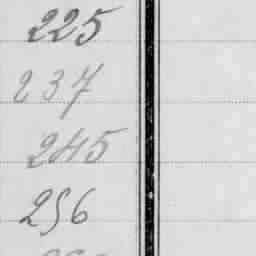 225
237
245
256